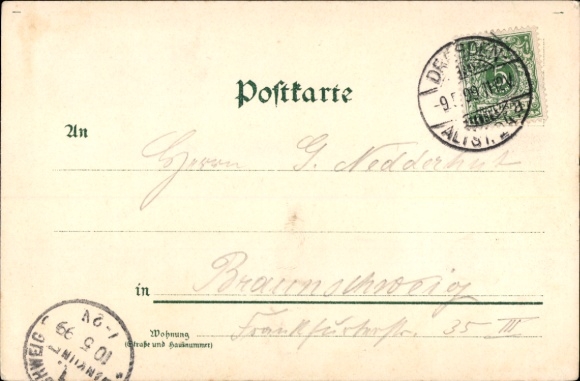 DRESDEN
-9.5.99.
ALTST.
5
Postkarte
An
Herrn G. Nedderhut
in Braunschweig
Wohnung
(Straße und Hausnummer)
Frankfurterstr. 35 III
10 5 99